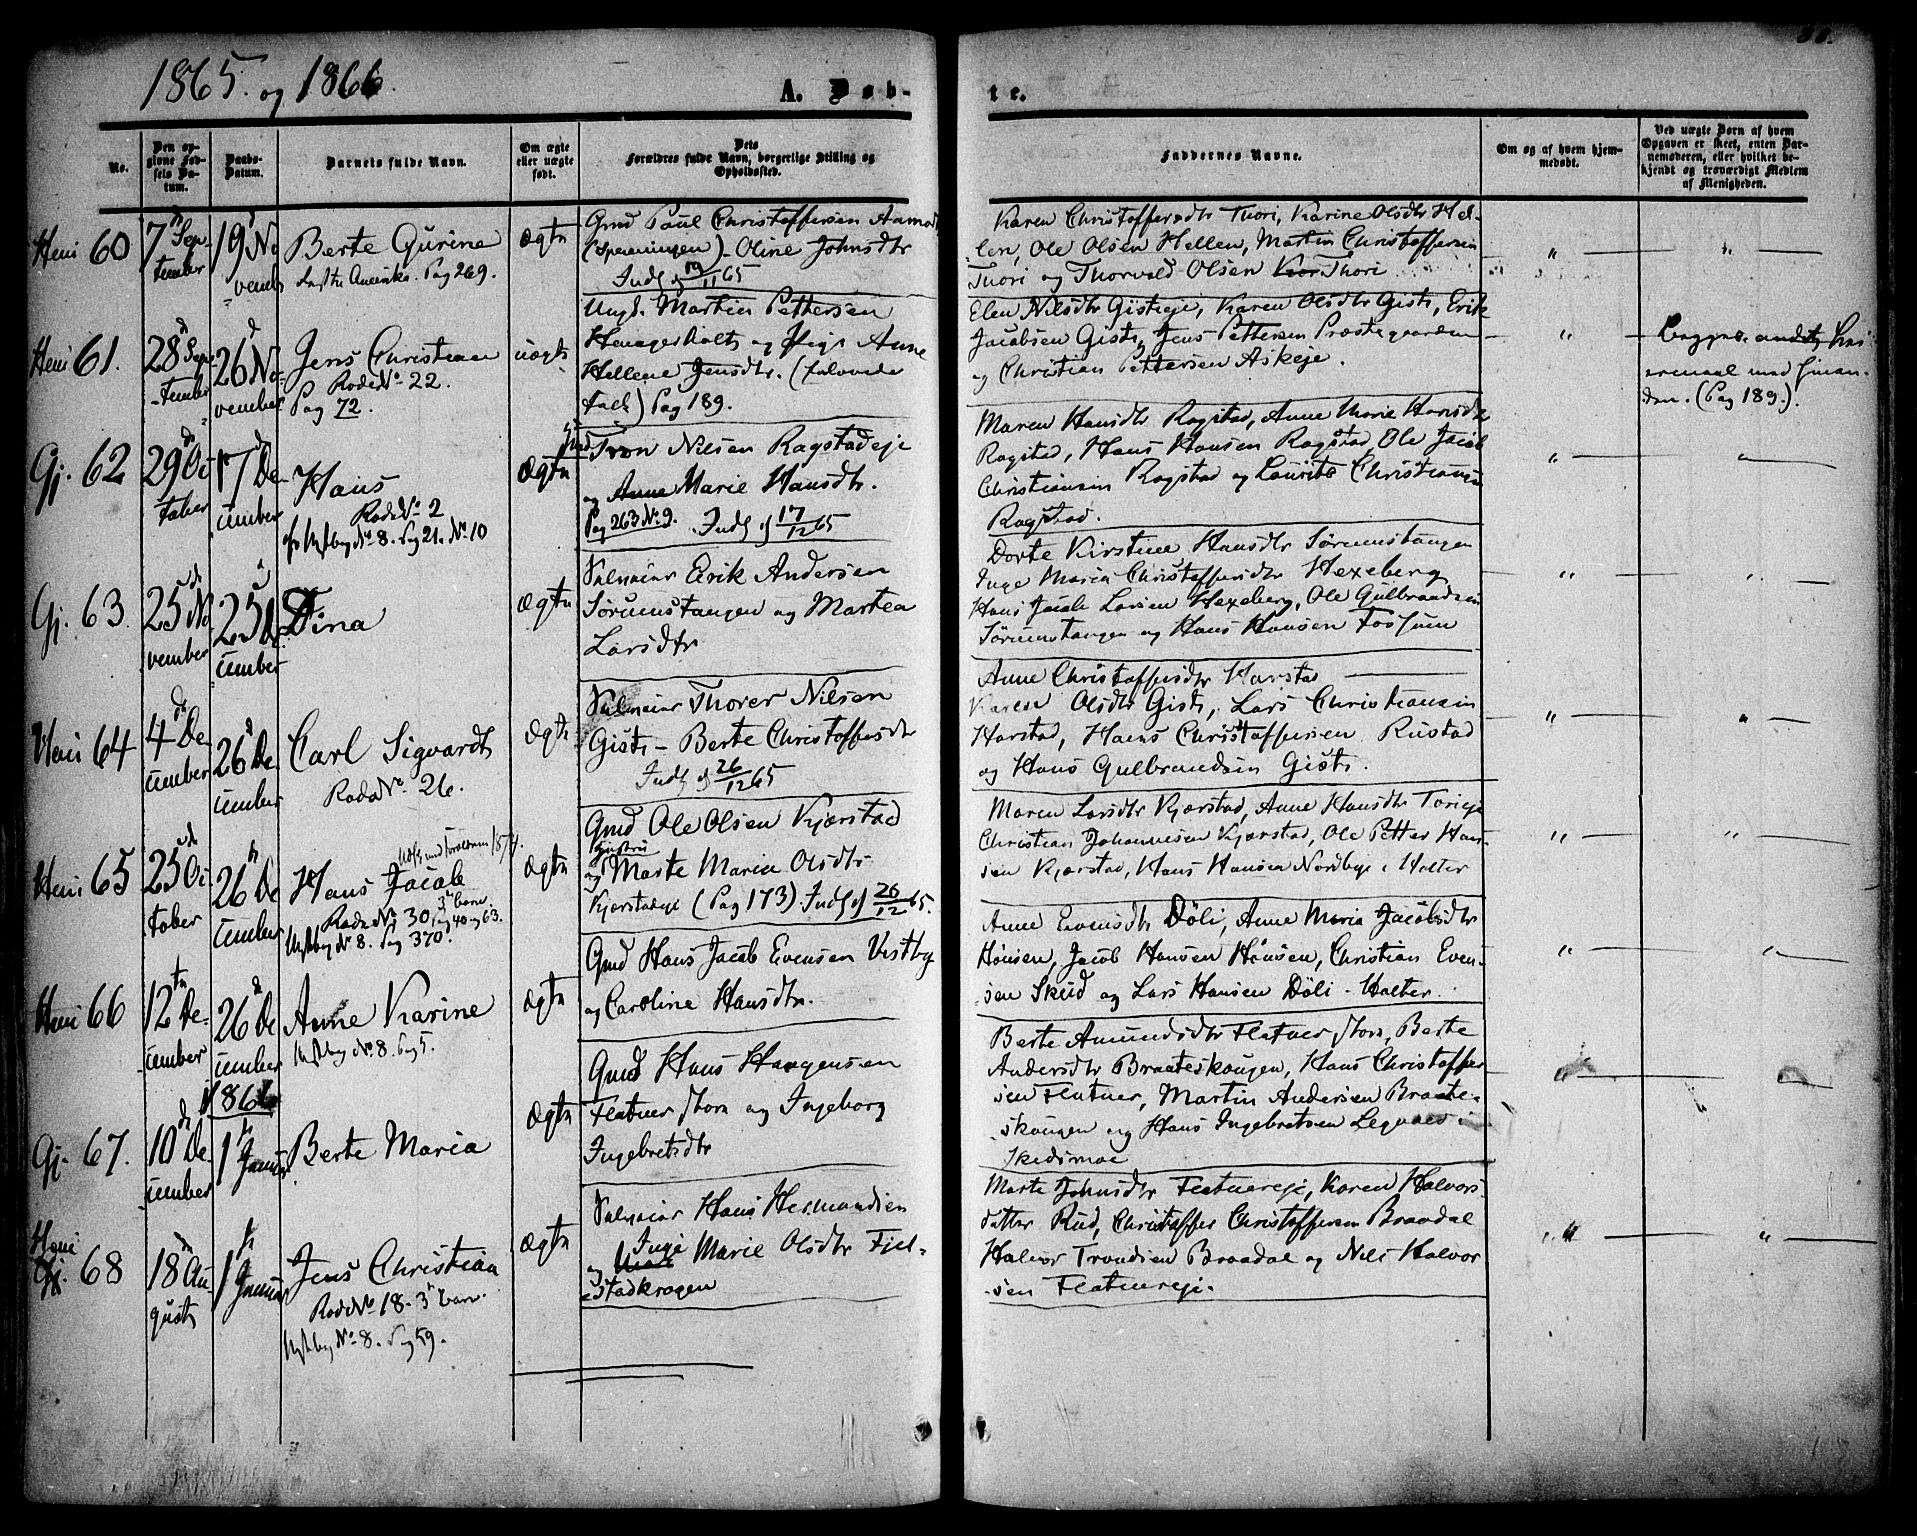 1865. og 1866.
A. Døb-
te.
No.
Den op-
givne Fød-
sels Da-
tum.
Daabs-
Datum.
Barnets fulde Navn.
Om ægte
eller uægte
født.
Dets
Forældres fulde Navn, borgerlige Stilling og
Opholdssted.
Faddernes Navne.
Om og af hvem hjem-
medøbt.
Ved uægte Børn af hvem
Opgaven er skeet, enten Bar-
nemoderen, eller hvilket be-
kjendt og troværdigt Medlem
af Menigheden.
60
7 Sep-
tember
19 No
vemb
Berte Gurine
Pag 269.
Ægte
Gmd Paul Christoffersen Aamod
(Speningen) - Oline Johnsdtr
Indf 19/11 65
Karen Christoffersdtr Thori, Karine Olsdtr Hel-
len, Ole Olsen Hellen, Martin Christoffersen
Thori og Thorvald Olsen Thori
"
"
61.
28 Sep
tember
26 No
vember
Jens Christian
Rode No 22.
Pag 72.
uægte
Ungk. Martin Pettersen
og Pige Anne
Hellene Jensdtr. (
) Pag 189.
Elen Nilsdtr Gisteje, Karen Olsdtr Gist, Erik
Jacobsen Gist, Jens Pettersen Præstegaarden
og Christian Pettersen Askeje.
"
(Pag 189).
Gj. 62
29 Oc
tober
17 De
cember
Hans
Rode No 2
No 8. Pag 21. No 10
Ægte
Iver Nilsen Ragstadeje
og Anne Marie Hansdtr.
Pag 263 No 9. Indf 17/12 65
Maren Hansdtr Ragstad, Anne Marie Hansdtr
Ragstad, Hans Hansen Ragstad, Ole Jacob
Christiansen Ragstad og Laurits Christiansen
Ragstad.
"
"
Gj. 63.
25 No
vember
25 De
cember
Dina
Ægte
Erik Andersen
Sørumstangen og Martea
Larsdtr
Dorte Kirstine Hansdtr Sørumstangen
Inge Maria Christoffersdtr Hexeberg
Hans Jacob Larsen Hexeberg, Ole Gulbrandsen
Sørumstangen og Hans Hansen Fossum
"
"
64
4 De
cember
26 De
cember
Carl Sigvardt
Rode No 26.
Ægte
Thorer Nilsen
Gist - Berte Christoffersdtr
Indf 26/12 65
Anne Christoffersdtr Harstad
Karen Olsdtr Gist, Lars Christiansen
Harstad, Hans Christoffersen Rustad
og Hans Gulbrandsen Gist.
"
"
65
25 Oc
tober
26 De
cember
Hans Jacob
3de barn
Rode No 30. Pag 40 og 63.
No 8. Pag 370.
Ægte
Gmd Ole Olsen Kjærstad
og Marte Maria Olsdtr
Kjærstadeje (Pag 173). Indf 26/12 65.
Maren Larsdtr Kjærstad, Anne Hansdtr Torieje
Christian Johannesen Kjærstad, Ole Petter Han-
sen Kjærstad, Hans Hansen Nordbye i Holter
"
"
66
12 De-
cember
26 De
cember
Anne Karine
No 8. Pag 5.
Ægte
Gmd Hans Jacob Evensen Vestby
og Caroline Hansdtr.
Anne Evensdtr Døli, Anne Maria Jacobsdtr
Hønsen, Jacob Hansen Hønsen, Christian Even-
sen Skud og Lars Hansen Døli - Holter.
"
"
Gj. 67.
10 De-
cember
1866
1 Januar
Berte Maria
Ægte
Gmd Hans Haagensen
Flatner store og Ingeborg
Ingebretsdtr
Berte Amundsdtr Flatner store, Berte
Andersdtr Braateskougen, Hans Christoffer
sen Flatner, Martin Andersen Braate-
skougen og Hans Ingebretsen Legvold i
Skedsmoe
"
68
18 Au-
gust
1 Januar
Jens Christian
Rode No 18. 3de barn.
No 8. Pag 59.
Ægte
Hans Hermandsen
og Inge Marie Olsdtr Fjel-
stadkrogen
Marte Johnsdtr Flatnereje, Karen Halvors-
datter Rud, Christoffer Christoffersen Braadal
Halvor Trondsen Braadal og Nils Halvor
sen Flatnereje.
"
"